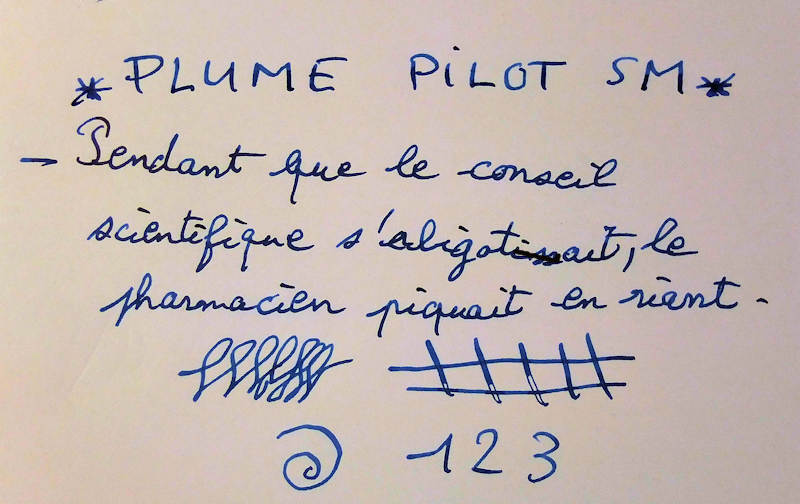 * PLUME PILOT SM *
- Pendant que le conseil
scientifique le
pharmacien piquait en riant.
1 2 3